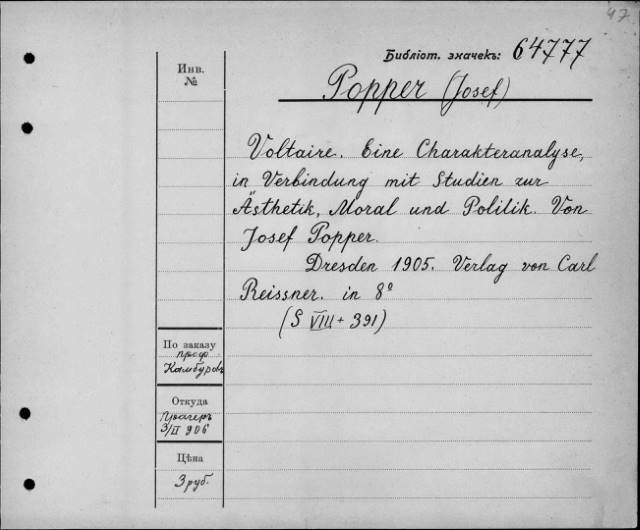 47
Библіот. значекъ: 64777
Инв.
№
Popper (Josef)
Voltaire. Eine Charakteranalyse,
in Verbindung mit Studien zur
Ästhetik, Moral und Politik. Von
Josef Popper.
Dresden 1905. Verlag von Carl
Reissner. in 8°
(S VIII + 391)
По заказу
проф.
Камбуровъ
Откуда
Прагеръ
3/II 906
Цѣна
3 руб.